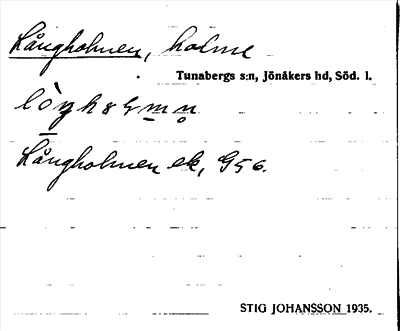 Långholmen, holme
Tunabergs s:n, Jönåkers hd, Söd. l.
Långholmen ek, G56.
STIG JOHANSSON 1935.